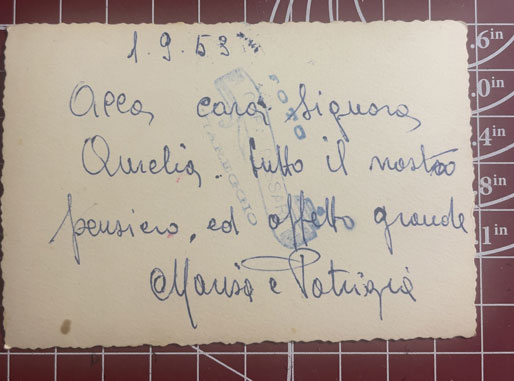 1.9.53
Alla cara Signora
Aurelia. Tutto il nostro
pensiero, ed affetto grande
Marisa e Patrizia
FOTO
.6in
.0in
.4in
8in
1in